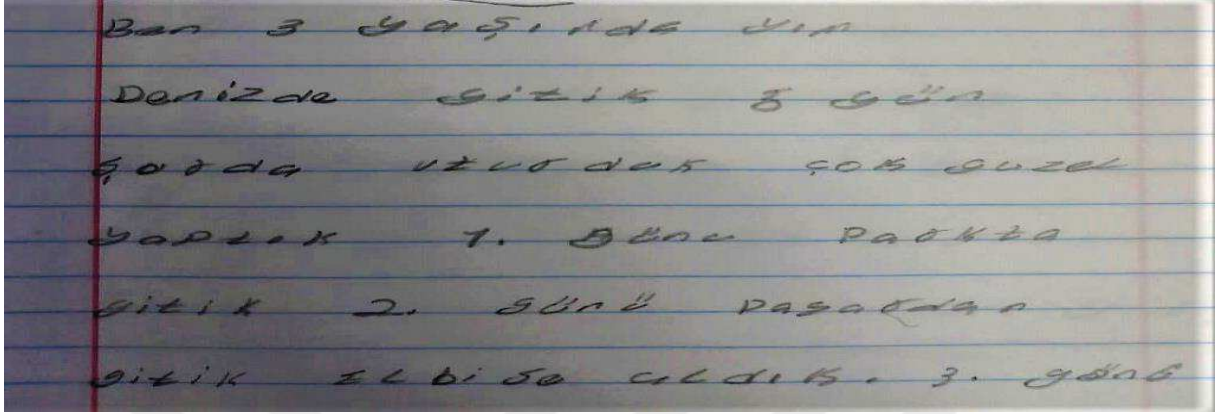 Ben 3 yaşında yım
Denizde gitik 3 gün
şorda uturduk çok guzel
yaptık 1. Günu parkta
gitik 2. günü pagardan
gitik elbise aldık. 3. günü